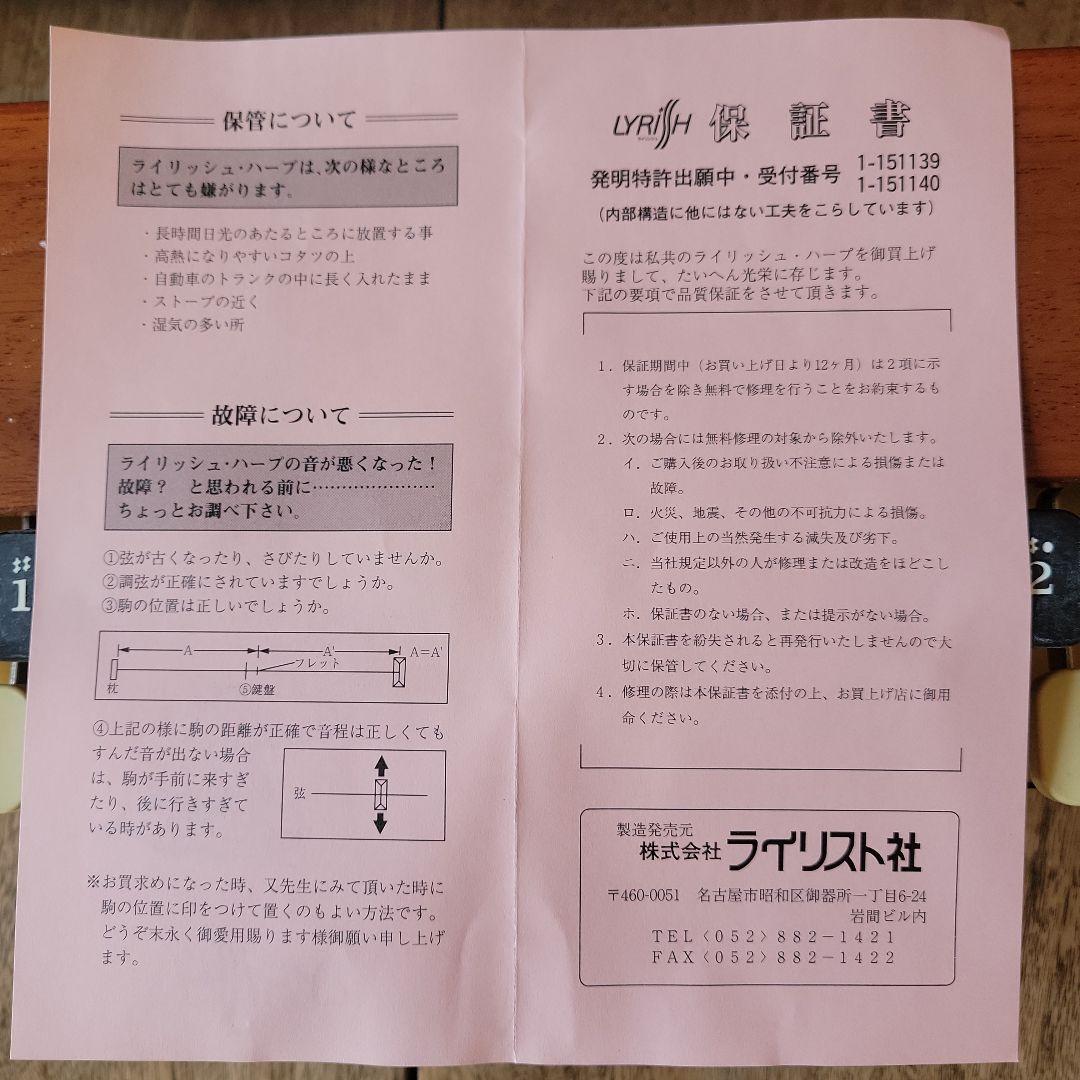 保管について
ライリッシュ・ハープは、次の様なところ
はとても嫌がります。
・長時間日光のあたるところに放置する事
・高熱になりやすいコタツの上
・自動車のトランクの中に長く入れたまま
・ストーブの近く
・湿気の多い所
故障について
ライリッシュ・ハープの音が悪くなった！
故障？　と思われる前に…………………
ちょっとお調べ下さい。
①弦が古くなったり、さびたりしていませんか。
②調弦が正確にされていますでしょうか。
③駒の位置は正しいでしょうか。
A A' A=A'
フレット
枕 ⑤鍵盤
④上記の様に駒の距離が正確で音程は正しくても
すんだ音が出ない場合
は、駒が手前に来すぎ
たり、後に行きすぎて
いる時があります。
弦
※お買求めになった時、又先生にみて頂いた時に
駒の位置に印をつけて置くのもよい方法です。
どうぞ末永く御愛用賜ります様御願い申し上げ
ます。
LYRiSH 保証書
発明特許出願中・受付番号 1-151139
1-151140
（内部構造に他にはない工夫をこらしています）
この度は私共のライリッシュ・ハープを御買上げ
賜りまして、たいへん光栄に存じます。
下記の要項で品質保証をさせて頂きます。
1．保証期間中（お買い上げ日より12ヶ月）は２項に示
す場合を除き無料で修理を行うことをお約束するも
のです。
2．次の場合には無料修理の対象から除外いたします。
イ．ご購入後のお取り扱い不注意による損傷または
故障。
ロ．火災、地震、その他の不可抗力による損傷。
ハ．ご使用上の当然発生する減失及び劣下。
ニ．当社規定以外の人が修理または改造をほどこし
たもの。
ホ．保証書のない場合、または提示がない場合。
3．本保証書を紛失されると再発行いたしませんので大
切に保管してください。
4．修理の際は本保証書を添付の上、お買上げ店に御用
命ください。
製造発売元
株式会社ライリスト社
〒460-0051　名古屋市昭和区御器所一丁目6-24
岩間ビル内
TEL〈052〉882－1421
FAX〈052〉882－1422
1
2